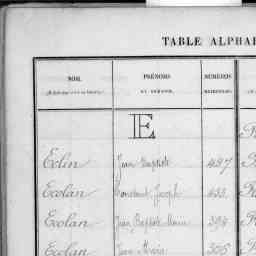 TABLE ALPHA
NOM. PRÉNOMS NUMÉROS
E
Eclin Jean Baptiste 487
Ecolan Constant Joseph 433
Ecolan Jean Baptiste Marie 394
Ecolan Jean Marie 305